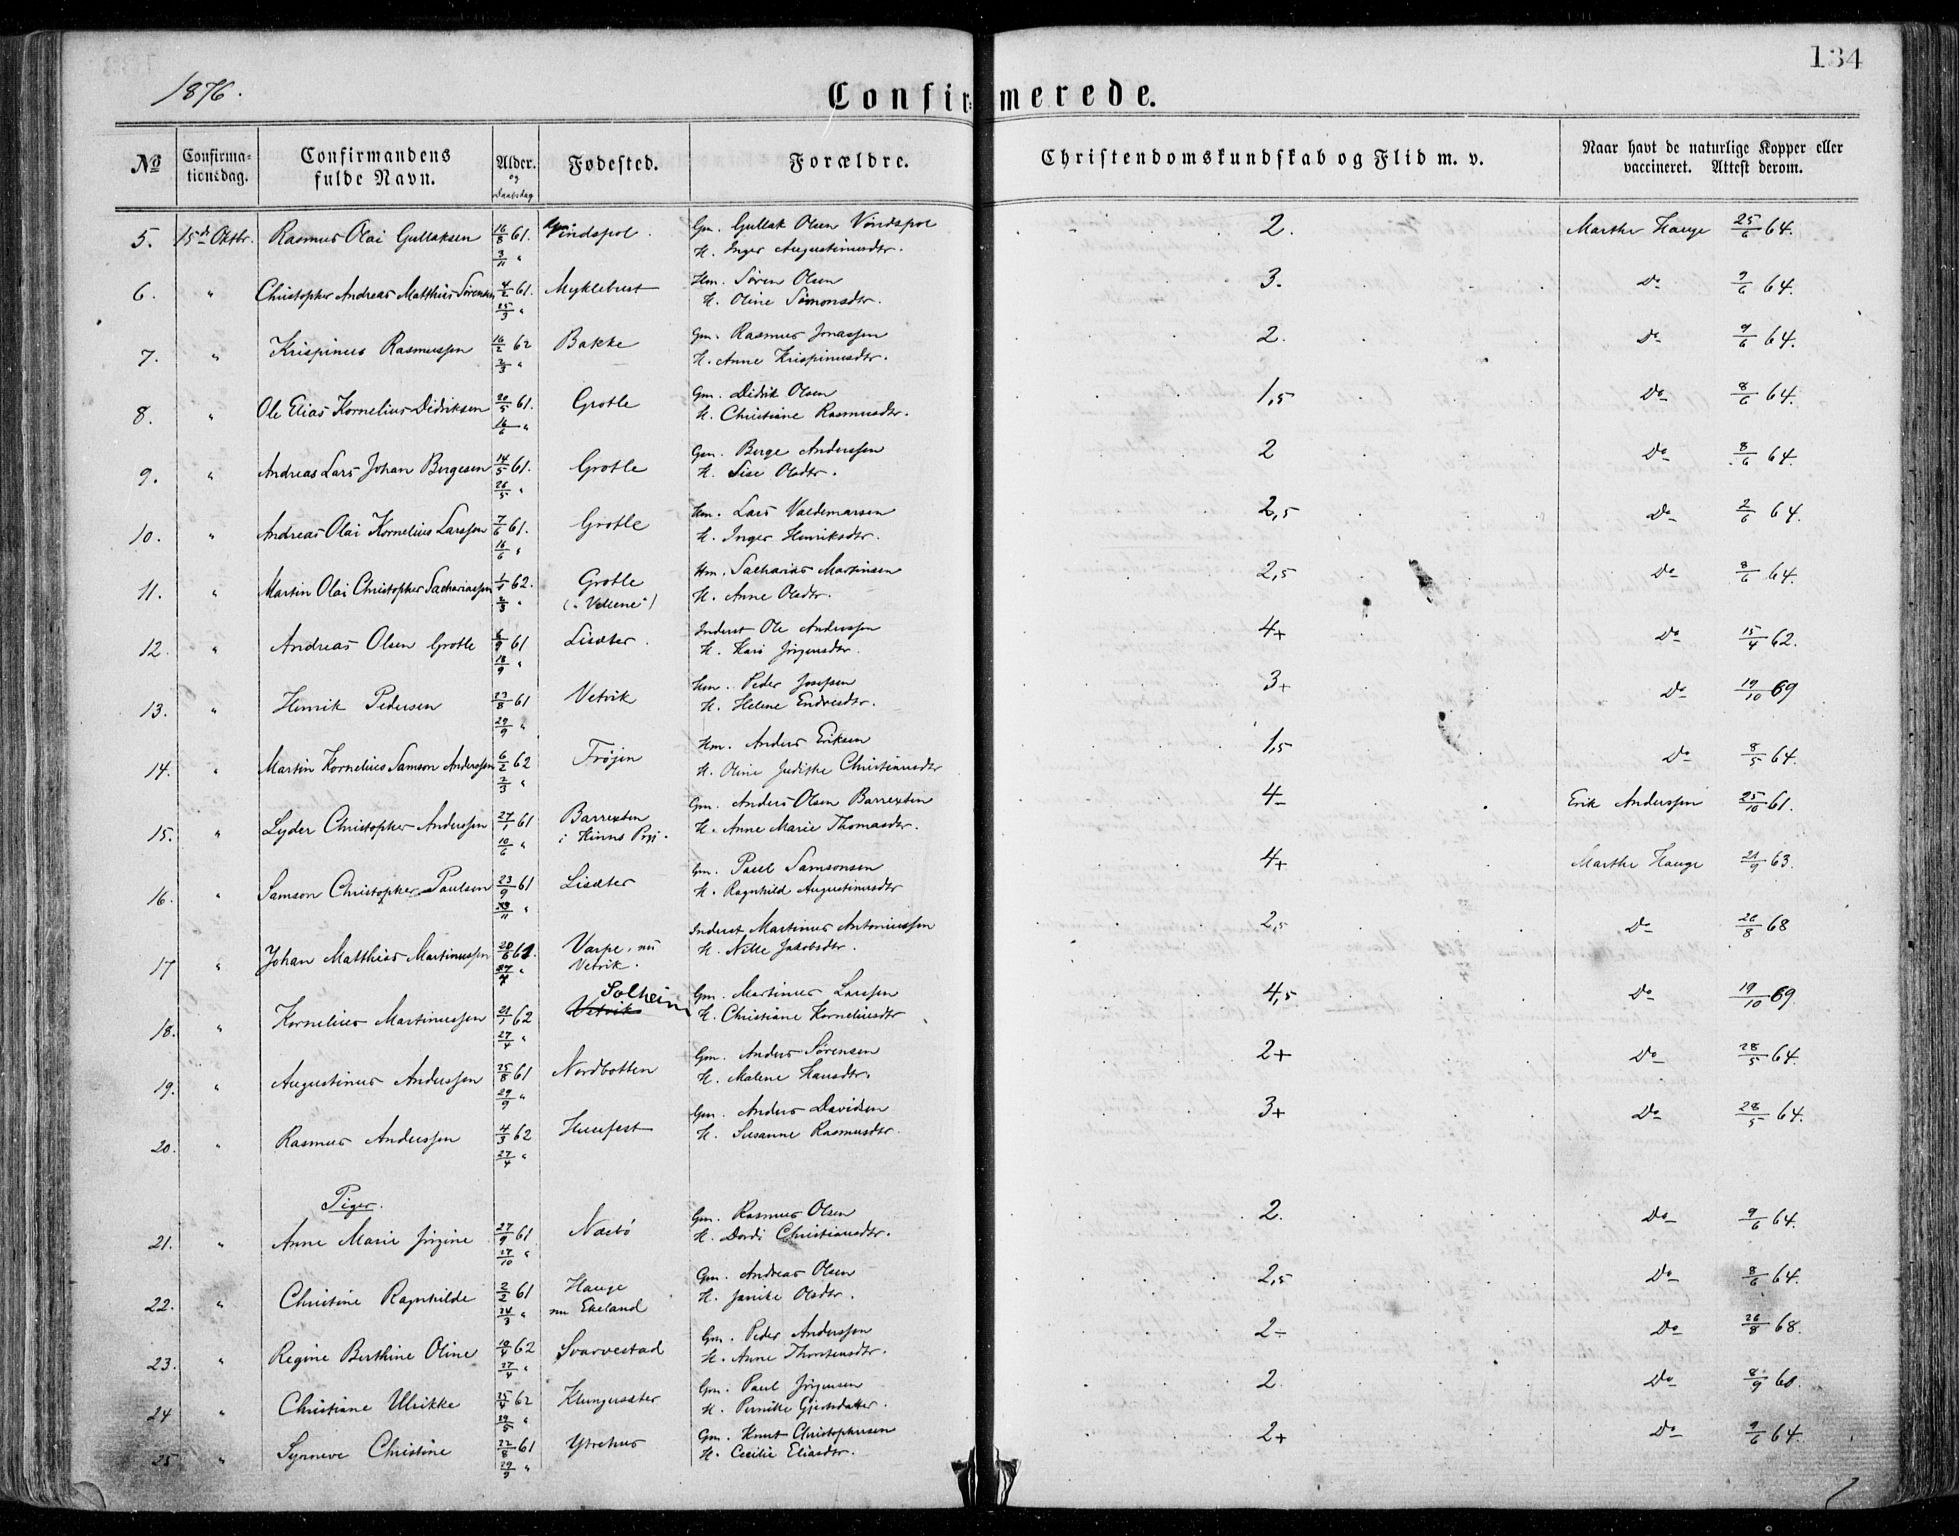 134
1876.
Confirmerede.
№ Confirma-tionsdag. Confirmandens fulde Navn. Alder. og Daabsdag Fødested. Forældre. Christendomskundskab og Flid m. v. Naar havt de naturlige Kopper eller vaccineret. Attest derom.
5. 15de Oktbr. Rasmus Olai Gullaksen 16/8 61. 3/11 " Vindspol. Gm. Gullak Olsen Vindspol H. Inger Augustinusdtr. 2. Marthe Hauge 25/6 64.
6. " Christopher Andreas Matthias Sørensen 4/2 61. 25/3 " Myklebust Hm. Søren Olsen H. Oline Simonsdtr. 3. Do 9/6 64.
7. " Krispinus Rasmussen 16/2 62 2/3 " Bakke Gm. Rasmus Jonassen H. Anne Krispinusdtr. 2. Do 9/6 64.
8. " Ole Elias Kornelius Didriksen 20/5 61. 16/6 " Grotle Gm. Didrik Olsen H. Christiane Rasmusdtr. 1,5 Do 8/6 64.
9. " Andreas Lars Johan Bergesen 14/5 61. 26/5 " Grotle Gm. Berge Anderssen H. Sise Olsdtr. 2 Do 8/6 64.
10. " Andreas Olai Kornelius Larssen 7/6 61. 16/6 " Grotle Hm. Lars Valdemarsen H. Inger Henriksdtr. 2,5 Do 2/6 64.
11. " Martin Olai Christopher Sachariassen 1/1 62. 2/3 " Grotle Hm. Sacharias Martinsen H. Anne Olsdtr. 2,5 Do 8/6 64.
12. " Andreas Olsen Grotle 6/9 61 18/9 " Lisæter. Inderst Ole Anderssen H. Kari Jørgensdtr. 4+ Do 15/4 62.
13. " Henrik Pedersen 23/8 61 29/9 " Vetvik Hm. Peder Josefsen H. Helene Endresdtr. 3+ Do 19/10 69
14. " Martin Kornelius Samson Anderssen 6/2 62 2/3 " Frøjen Hm. Anders Eriksen H. Oline Judithe Christiansdtr 1,5 Do 8/5 64.
15. " Lyder Christopher Anderssen 27/1 61 10/6 " Barrexten i Kinns Pgj. Gm. Anders Olsen Barrexten H. Anne Marie Thomasdtr. 4- Erik Anderssen 25/10 61.
16. " Samson Christopher Paulsen 23/9 61 Lisæter Gm. Paul Samsonsen H. Ragnhild Augustinusdtr 4+ Marthe Hauge 21/9 63.
17 " Johan Matthias Martinussen 61. Varpe, nu Vetvik. Inderst Martinus Antoniussen H. Nille Jakobsdtr. 2,5 Do 26/8 68
18. " Kornelius Martinussen 21/1 62 27/4 " Vetvik Solheim Gm. Martinus Larssen H. Christiane Korneliusdtr 4,5 Do 19/10 69.
19. " Augustinus Anderssen 25/8 61 29/9 " Nordbotten Gm. Anders Sørensen H. Malene Hansdtr. 2+ Do 28/5 64.
20. " Rasmus Anderssen 4/3 62 27/4 " Hunfest Gm. Anders Davidsen H. Susanne Rasmusdtr. 3+ Do 28/5 64.
Piger.
21. " Anne Marie Jørgine 27/9 61 17/10 " Næsbø Gm. Rasmus Olsen H. Dordi Christiansdtr. 2. Do 9/6 64.
22. " Christine Ragnhilde 2/2 61 24/3 " Hauge nu Ekeland Gm. Andreas Olsen H. Janike Olsdtr. 2,5 Do 8/6 64.
23. " Regine Berthine Oline 10/4 62 27/4 " Svarvestad Gm. Peder Anderssen H. Anne Thorstensdtr. 2- Do 26/8 68.
24 " Christiane Ulrikke 25/4 62 29/5 " Klungersæter Gm. Paul Jørgensen H. Pernike Gjertsdatter. 2. Do 8/9
25 " Synneve Christine 22/8 61 29/9 " Ytrehus Gm. Knut Christophersen H. Cecilie Eliasdtr. 2+ Do 9/6 64.